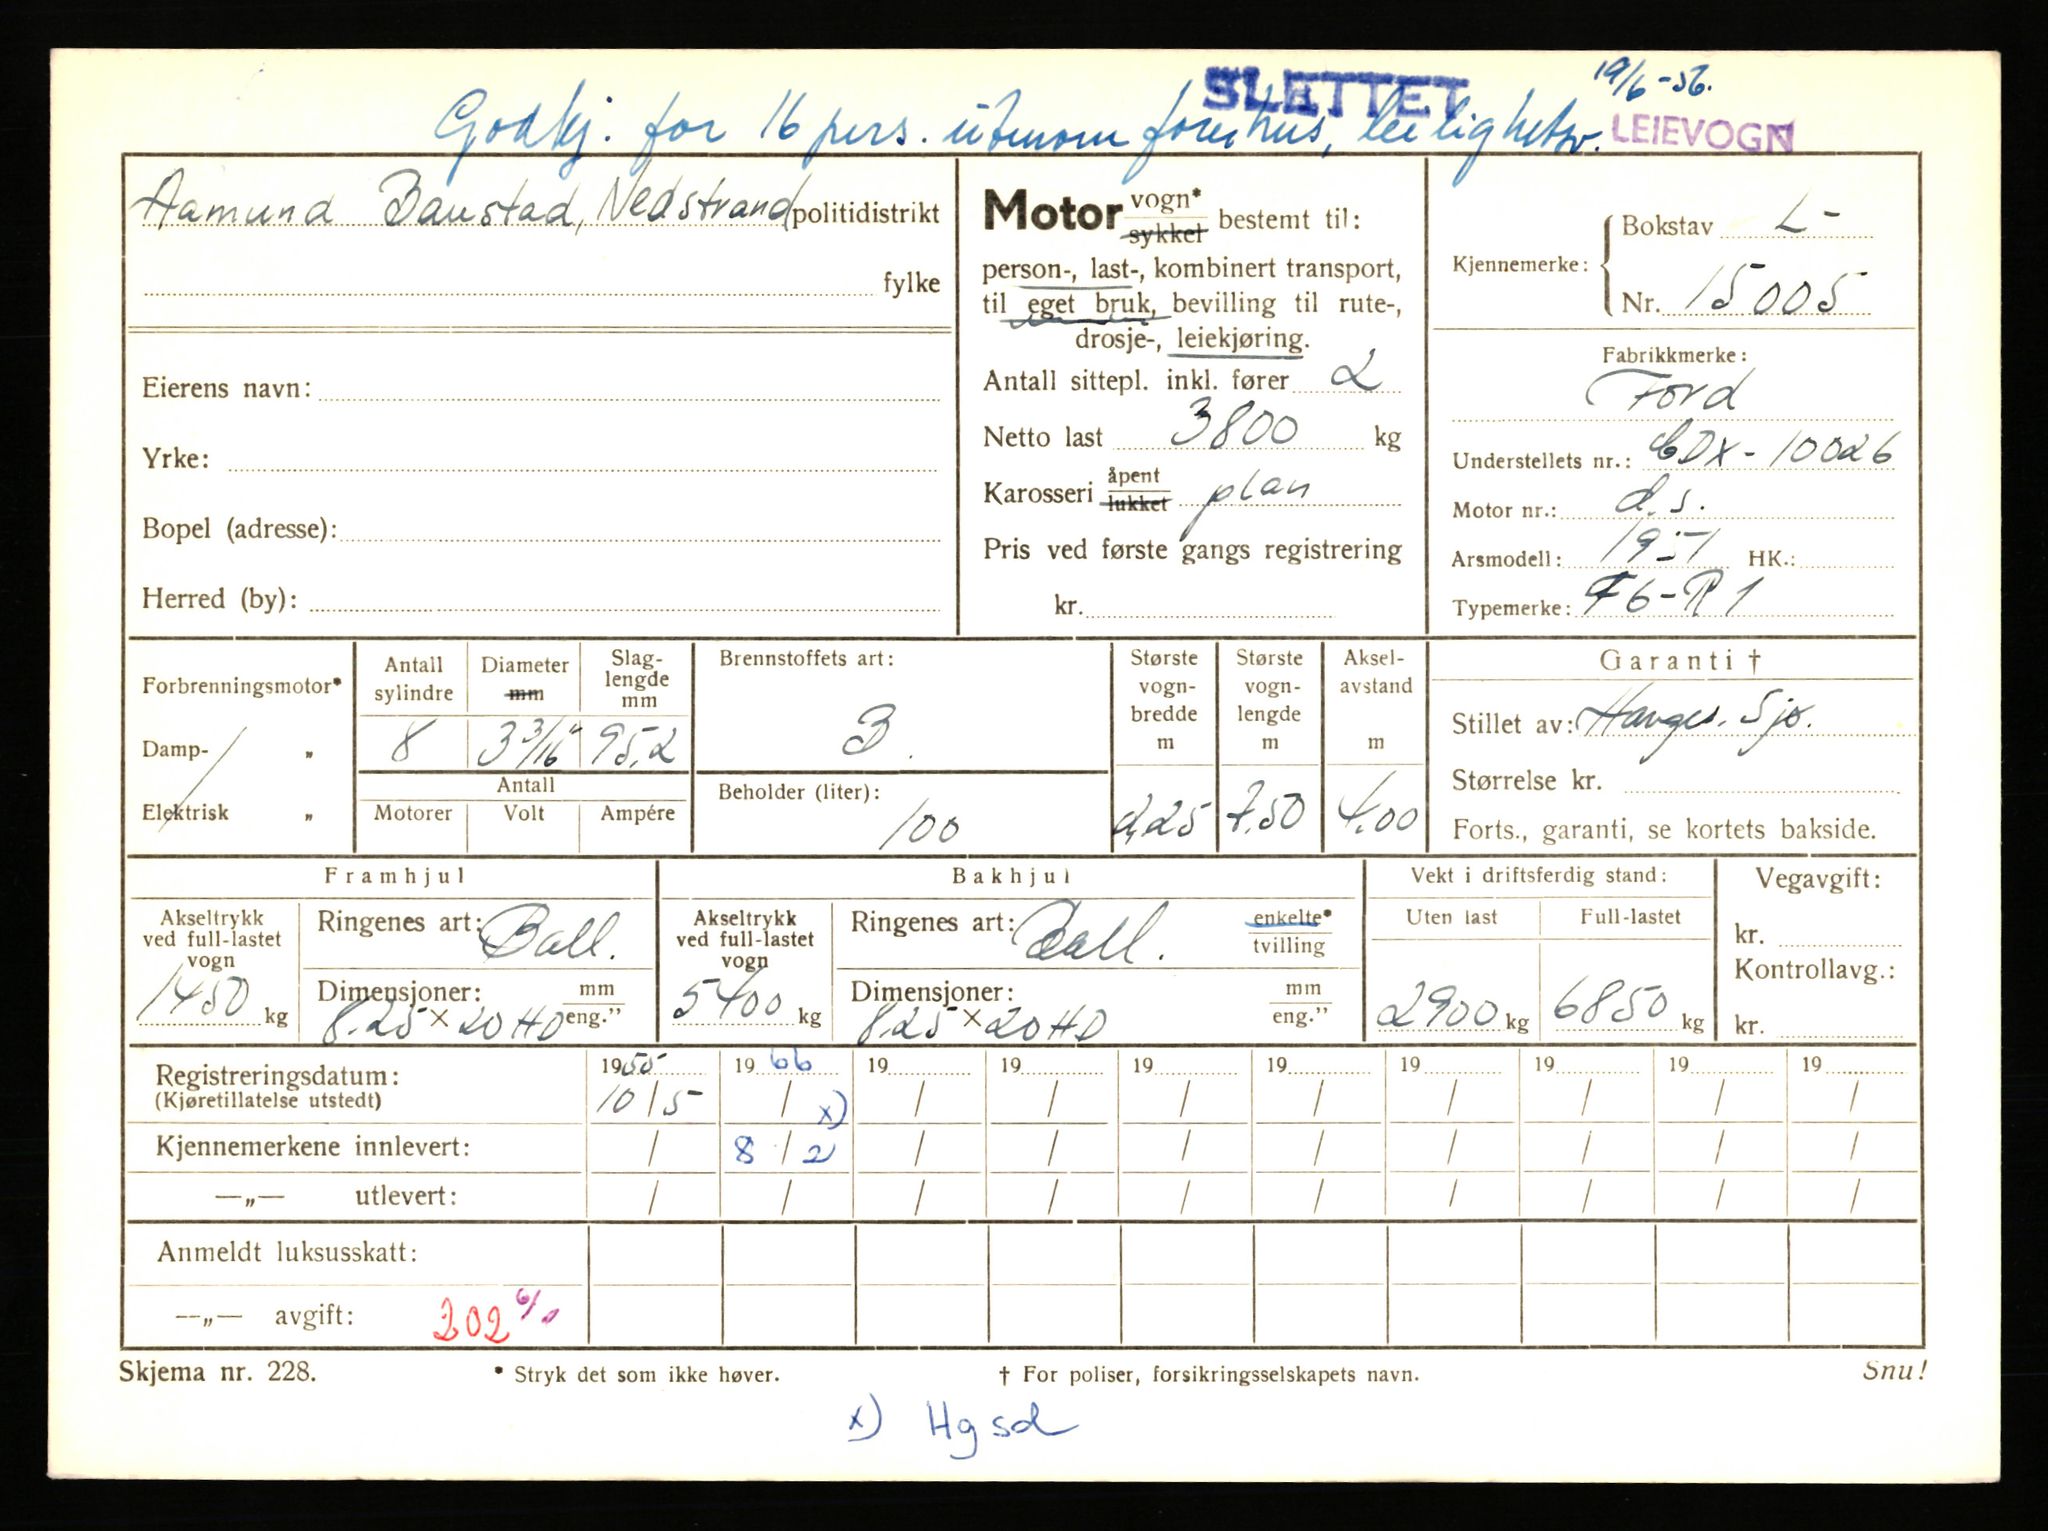 SLETTET 19/6-56.
Godkj. for 16 pers. utenom førerhus, leilighetsv. LEIEVOGN
Aamund Baustad, Nedstrand politidistrikt
fylke
Eierens navn:
Yrke:
Bopel (adresse):
Herred (by):
Motor vogn* sykkel bestemt til:
person-, last-, kombinert transport,
til eget bruk, bevilling til rute-,
drosje-, leiekjøring.
Antall sittepl. inkl. fører 2
Netto last 3800 kg
Karosseri åpent lukket plan
Pris ved første gangs registrering
kr.
Kjennemerke: Bokstav L-
Nr. 15005
Fabrikkmerke:
Ford
Understellets nr.: CDX-10026
Motor nr.: d.s.
Arsmodell: 1951 HK.:
Typemerke: F6-R1
Forbrenningsmotor*
Damp- „
Elektrisk „
Antall sylindre 8
Diameter mm 3 3/16"
Slag-lengde mm 95,2
Antall
Motorer Volt Ampére
Brennstoffets art:
B.
Beholder (liter):
100
Største vogn-bredde m 2,25
Største vogn-lengde m 7.50
Aksel-avstand m 4.00
Garanti †
Stillet av: Hauges. Sjø.
Størrelse kr.
Forts., garanti, se kortets bakside.
Framhjul
Akseltrykk ved full-lastet vogn 1450 kg
Ringenes art: Ball.
Dimensjoner: mm eng."
8.25 × 20 HD
Bakhjul
Akseltrykk ved full-lastet vogn 5400 kg
Ringenes art: Ball. enkelte* tvilling
Dimensjoner: mm eng."
8.25 × 20 HD
Vekt i driftsferdig stand:
Uten last 2900 kg
Full-lastet 6850 kg
Vegavgift:
kr.
Kontrollavg.:
kr.
Registreringsdatum: 1955 1966 19 19 19 19 19 19 19 19
(Kjøretillatelse utstedt) 10/5 / x) / / / / / / / /
Kjennemerkene innlevert: / 8/2 / / / / / / / /
—„— utlevert: / / / / / / / / / /
Anmeldt luksusskatt:
—„— avgift: 202
Skjema nr. 228. * Stryk det som ikke høver. † For poliser, forsikringsselskapets navn. Snu!
x) Hgsd